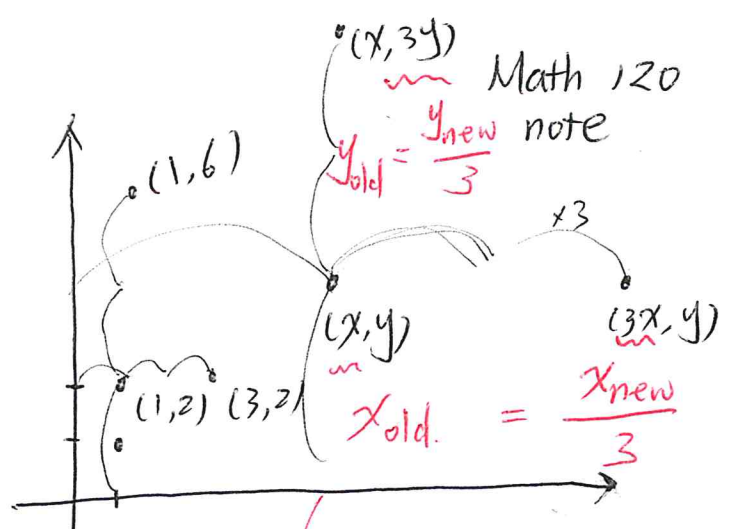 (x, 3y)
Math 120
note
y_old = y_new / 3
(1, 6)
×3
(x, y)
(3x, y)
(1, 2) (3, 2)
x_old. = x_new / 3